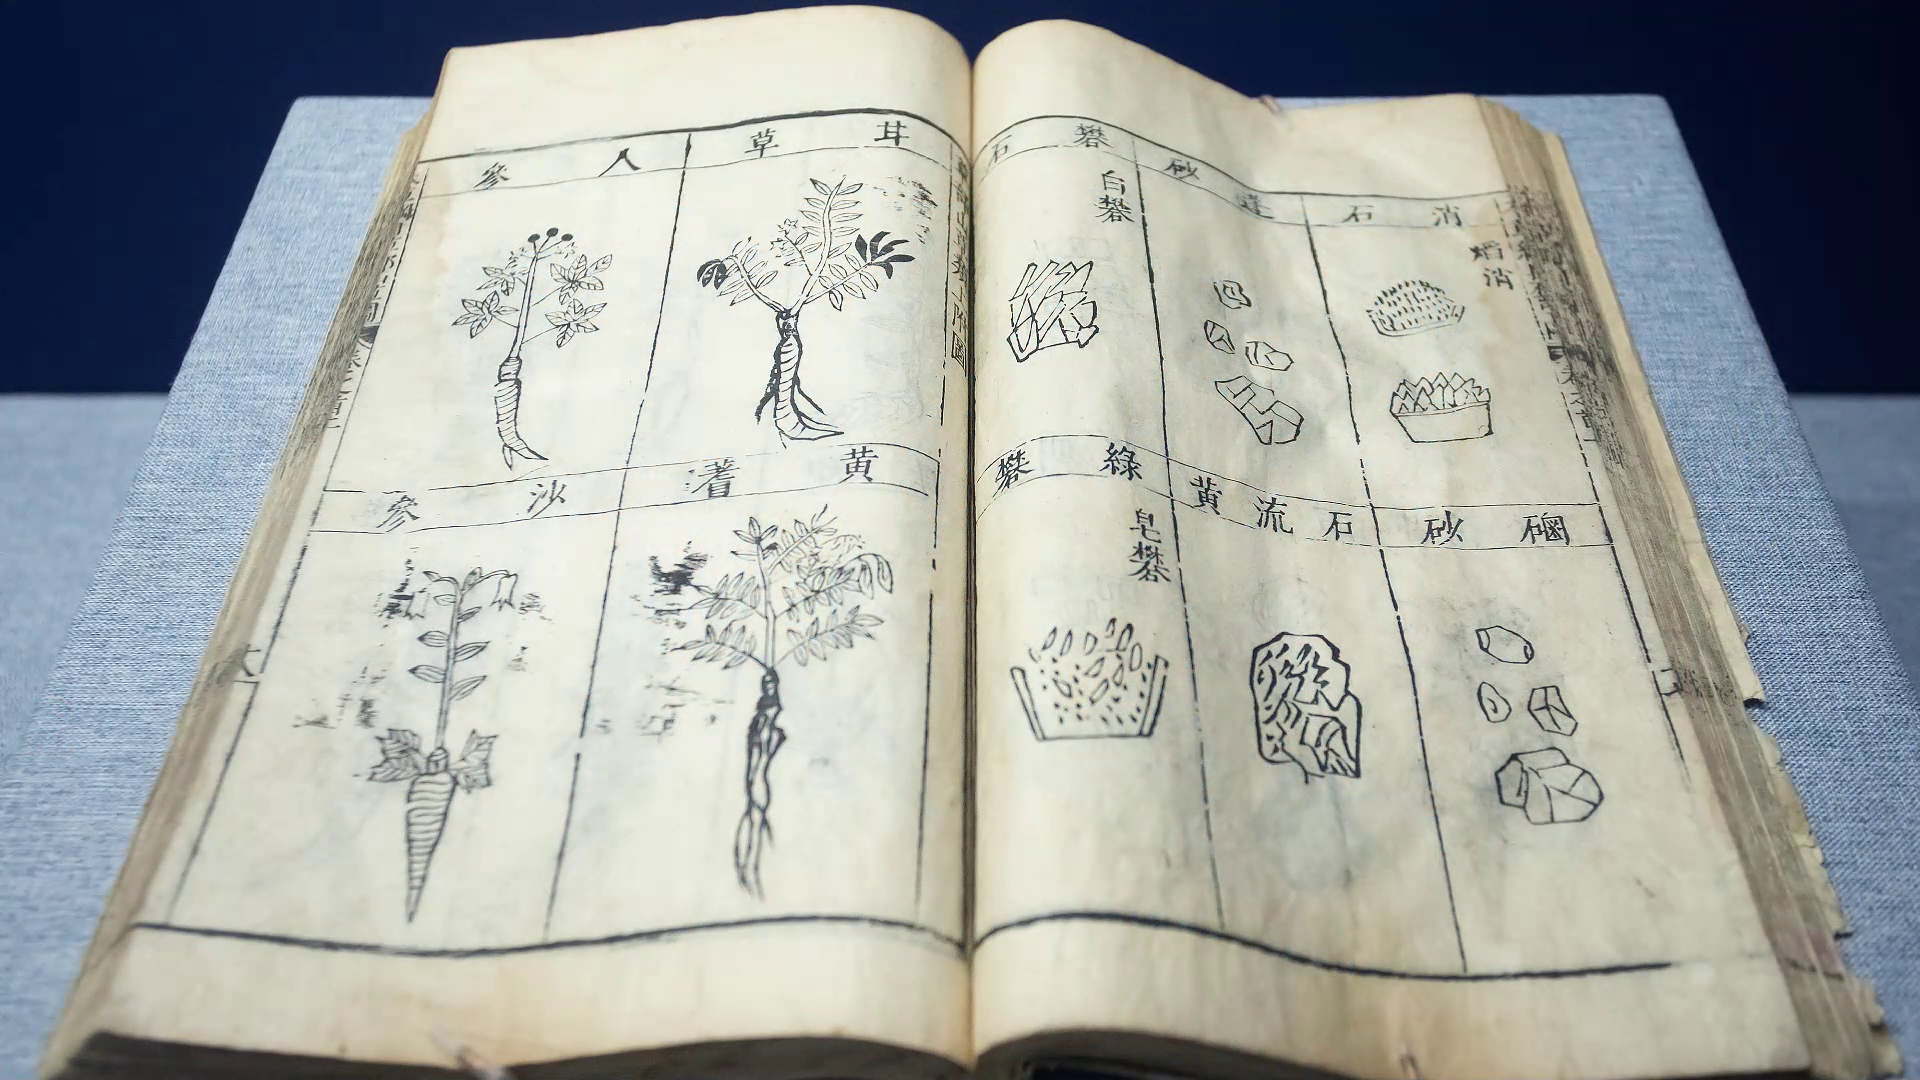 消石
焰消
蓬砂
礬石
白礬
硇砂
石流黄
綠礬
皂礬
甘草
人參
黄蓍
沙參